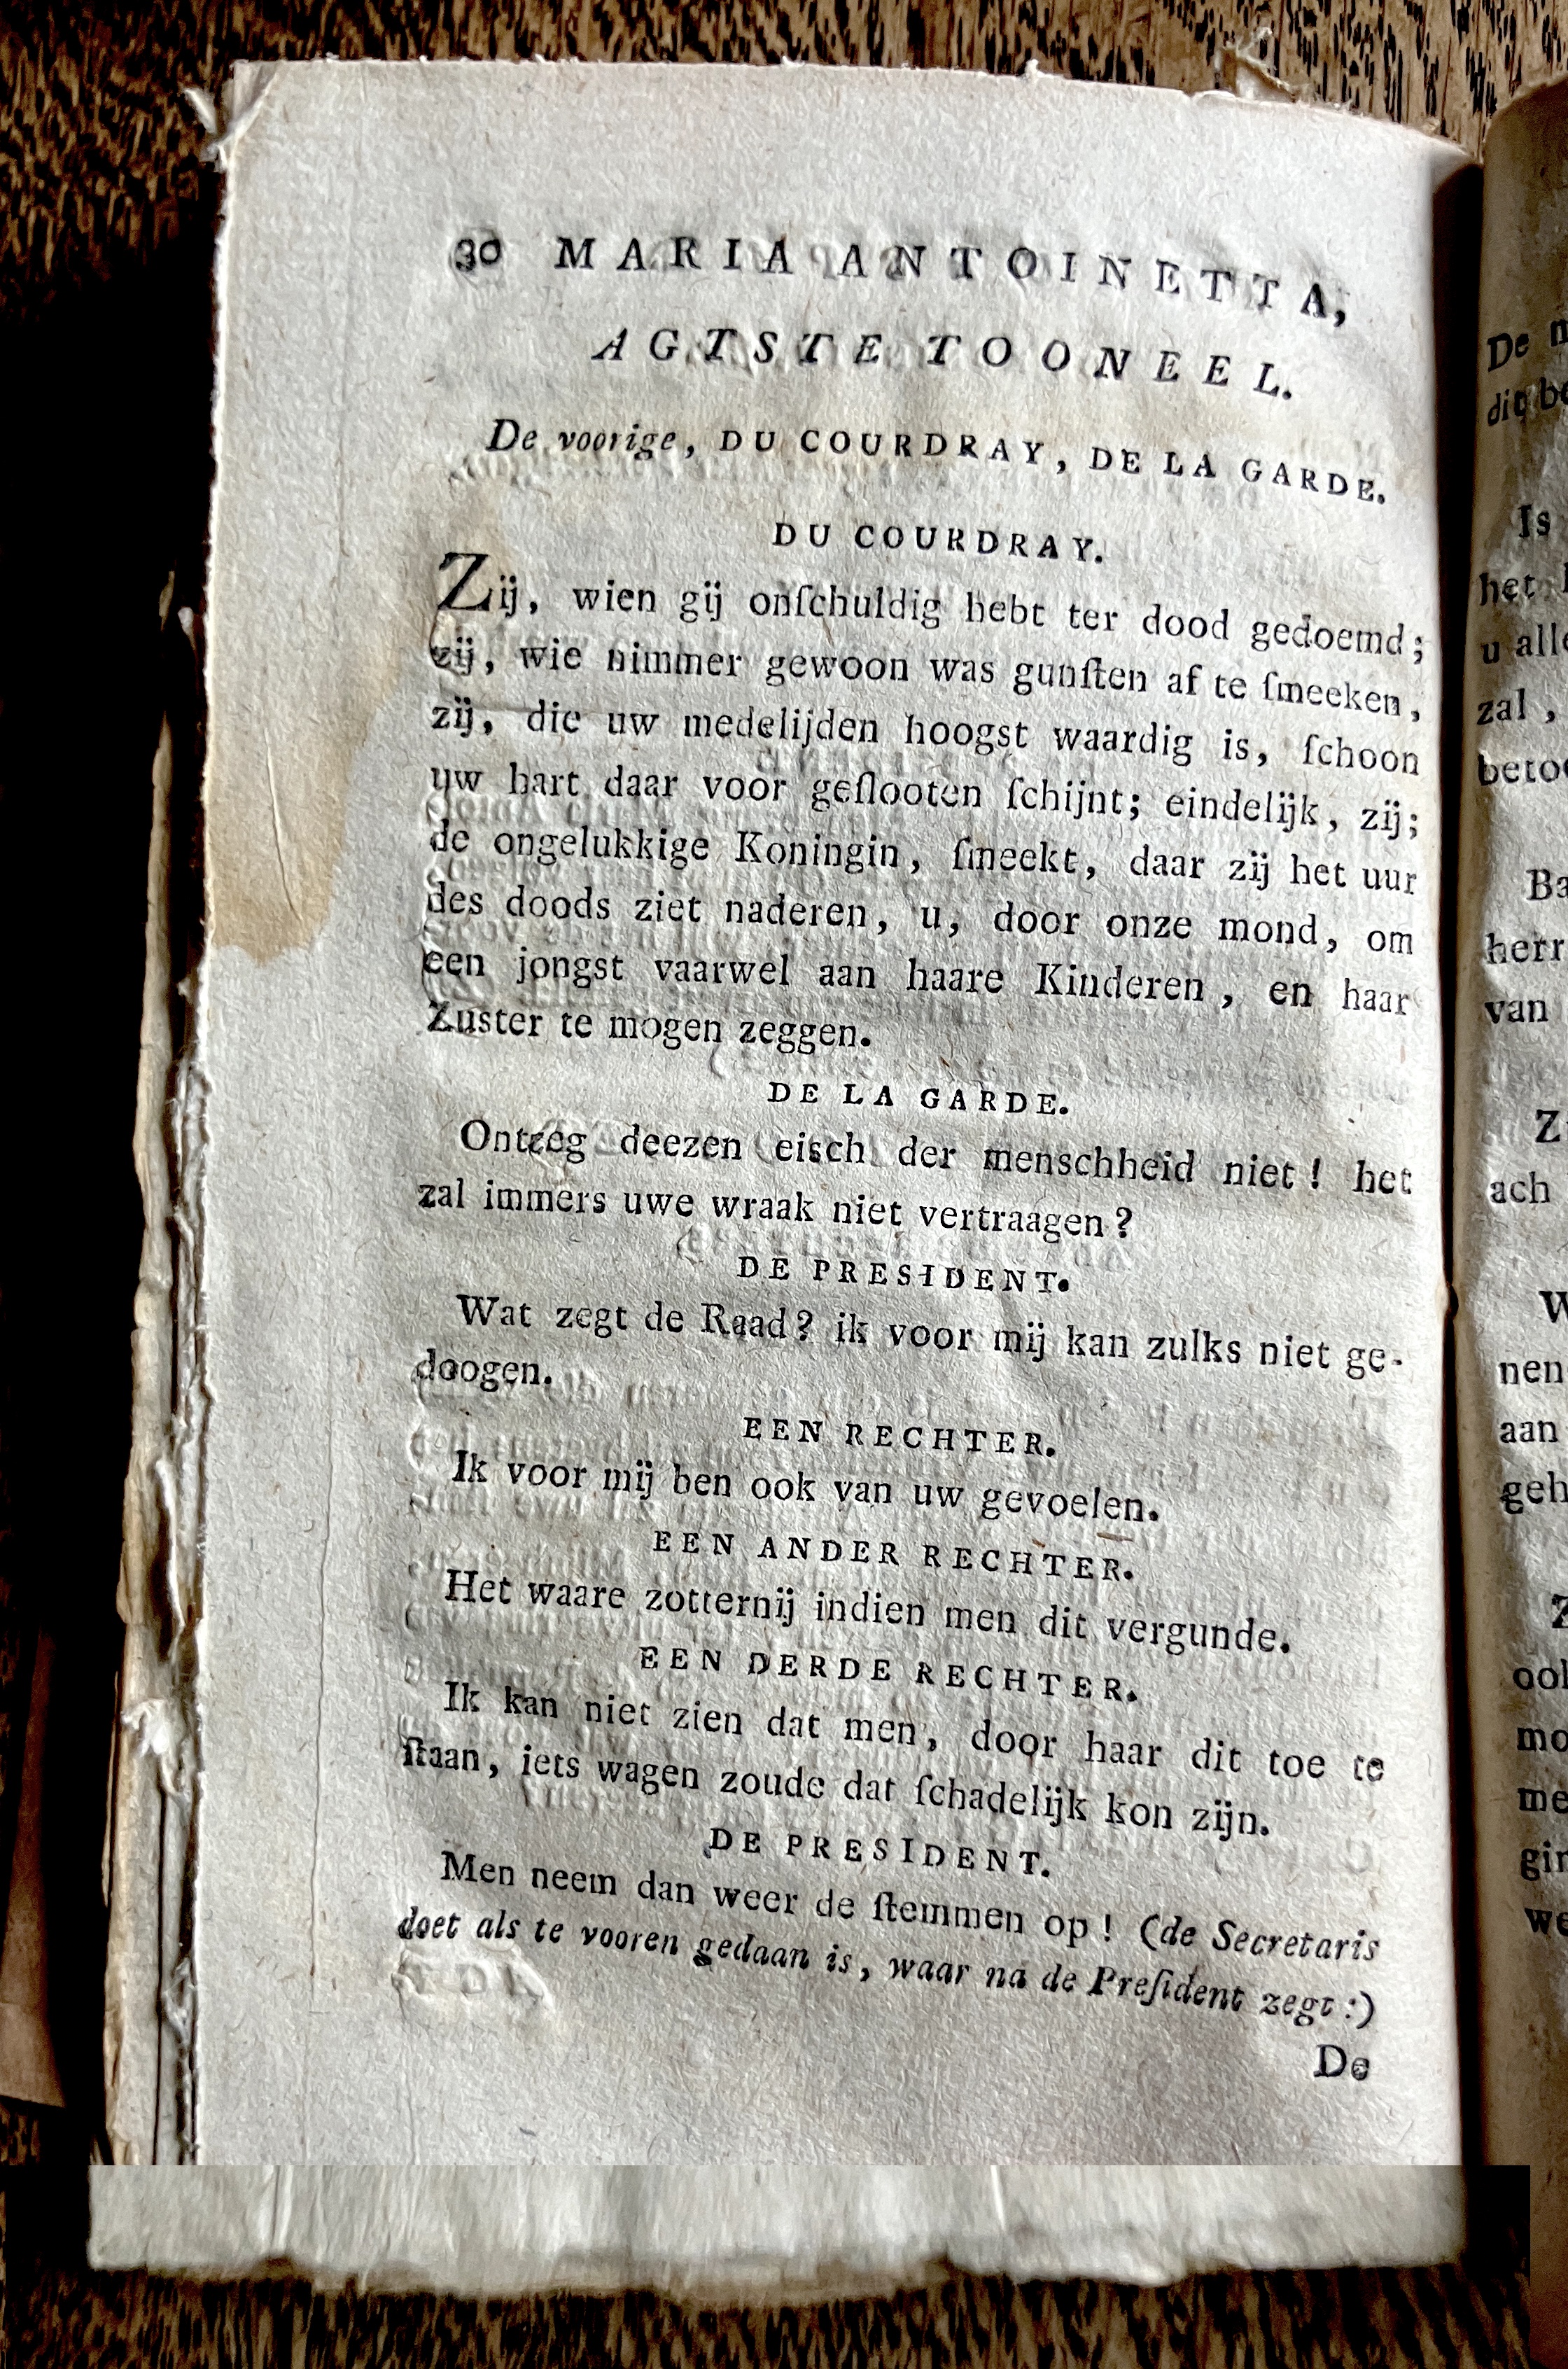 30 MARIA ANTOINETTA,
AGTSTE TOONEEL.
De voorige, DU COURDRAY, DE LA GARDE.
DU COURDRAY.
Zij, wien gij onſchuldig hebt ter dood gedoemd;
zij, wie nimmer gewoon was gunſten af te ſmeeken,
zij, die uw medelijden hoogst waardig is, ſchoon
uw hart daar voor geſlooten ſchijnt; eindelijk, zij;
de ongelukkige Koningin, ſmeekt, daar zij het uur
des doods ziet naderen, u, door onze mond, om
een jongst vaarwel aan haare Kinderen, en haar
Zuster te mogen zeggen.
DE LA GARDE.
Ontzeg deezen eisch der menschheid niet! het
zal immers uwe wraak niet vertraagen?
DE PRESIDENT.
Wat zegt de Raad? ik voor mij kan zulks niet ge-
doogen.
EEN RECHTER.
Ik voor mij ben ook van uw gevoelen.
EEN ANDER RECHTER.
Het waare zotternij indien men dit vergunde.
EEN DERDE RECHTER.
Ik kan niet zien dat men, door haar dit toe te
ſtaan, iets wagen zoude dat ſchadelijk kon zijn.
DE PRESIDENT.
Men neem dan weer de ſtemmen op! (de Secretaris
doet als te vooren gedaan is, waar na de Preſident zegt:)
De
De
dit
Is
het
u
zal,
herr
van
ach
nen
aan